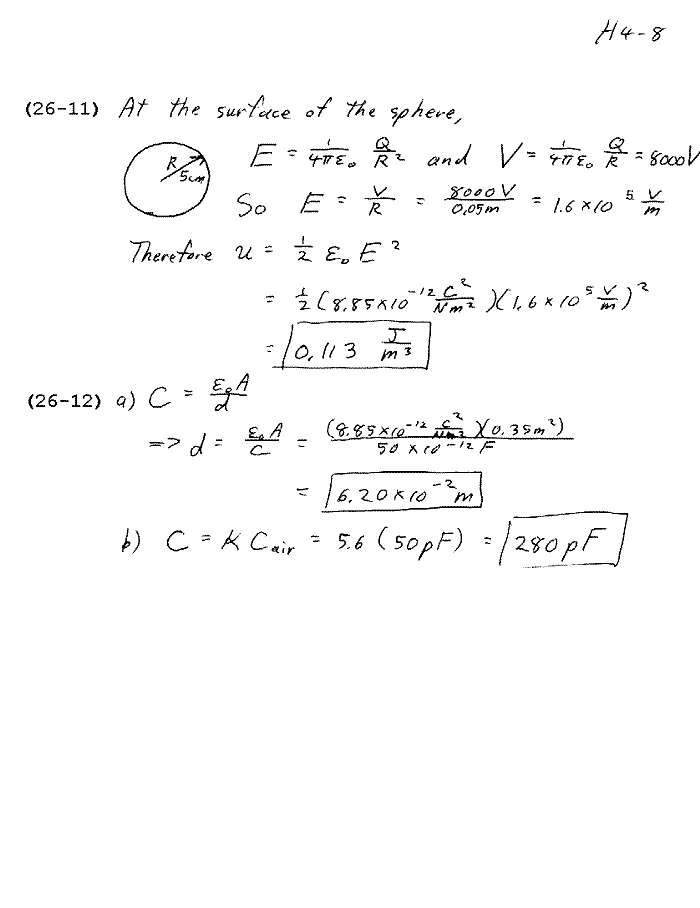 H4-8
(26-11) At the surface of the sphere,
R 5cm E = 1/4πε₀ Q/R² and V = 1/4πε₀ Q/R = 8000V
So E = V/R = 8000V/0.05m = 1.6×10⁵ V/m
Therefore u = ½ ε₀E²
= ½(8.85×10⁻¹² C²/Nm²)(1.6×10⁵ V/m)²
= 0.113 J/m³
(26-12) a) C = ε₀A/d
=> d = ε₀A/C = (8.85×10⁻¹² C²/Nm²)(0.35m²)/50×10⁻¹²F
= 6.20×10⁻²m
b) C = K C_air = 5.6 (50pF) = 280pF